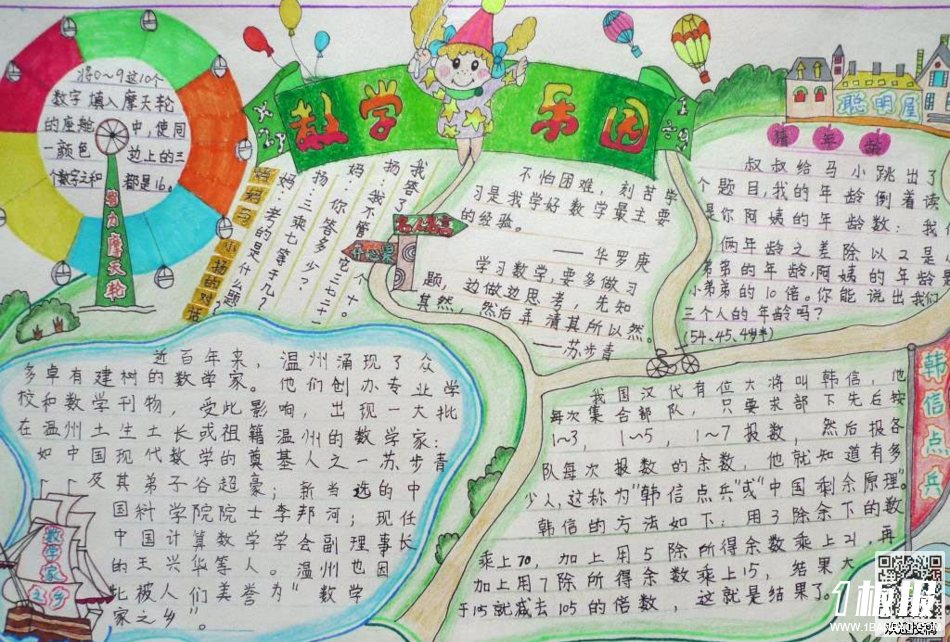 数学乐园
将0～9这10个
数字填入摩天轮
的座舱中,使同
一颜色边上的三
个数字之和都是16。
智力摩天轮
妈妈与小扬的对话
妈:考的是什么题?
扬:三乘七等于几?
妈:你答多少?
扬:我不管它三七二十一
我答了个十。
名人名言
开心果
不怕困难,刻苦学
习是我学好数学最主要
的经验。
——华罗庚
学习数学,要多做习
题,边做边思考,先知
其然,然后弄清其所以然。
——苏步青
聪明屋
猜年龄
叔叔给马小跳出了
个题目,我的年龄倒着读
是你阿姨的年龄数;我
俩年龄之差除以2是
弟弟的年龄,阿姨的年龄
小弟弟的10倍。你能说出我们
三个人的年龄吗?
近百年来,温州涌现了众
多卓有建树的数学家。他们创办专业学
校和数学刊物,受此影响,出现一大批
在温州土生土长或祖籍温州的数学家:
如中国现代数学的奠基人之一苏步青
及其弟子谷超豪;新当选的中
国科学院院士李邦河;现任
中国计算数学学会副理事长
的王兴华等人。温州也因
此被人们美誉为"数学
家之乡"。
数学家之乡
韩信点兵
我国汉代有位大将叫韩信,他
每次集合部队,只要求部下先后按
1～3,1～5,1～7报数,然后报各
队每次报数的余数,他就知道有多
少人,这称为"韩信点兵"或"中国剩余原理"
韩信的方法如下:用3除余下的数
乘上70,加上用5除所得余数乘上21,再
加上用7除所得余数乘上15,结果大
于105就减去105的倍数,这就是结果了。
1板报
WWW.1BANBAO.COM
欢迎投稿